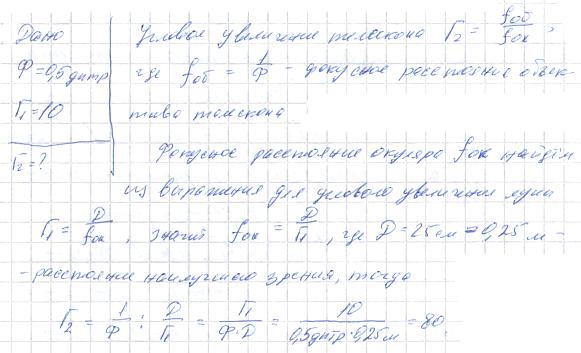 Дано
Ф=0,5дптр
Г₁=10
Г₂=?
Угловое увеличение телескопа Г₂ = fоб/fок,
где fоб = 1/Ф - фокусное расстояние объек-
тива телескопа
Фокусное расстояние окуляра fок найдём
из выражения для углового увеличения лупы
Г₁ = D/fок, значит fок = D/Г₁, где D=25см=0,25м -
- расстояние наилучшего зрения, тогда
Г₂ = 1/Ф : D/Г₁ = Г₁/Ф·D = 10/0,5дптр·0,25м = 80.